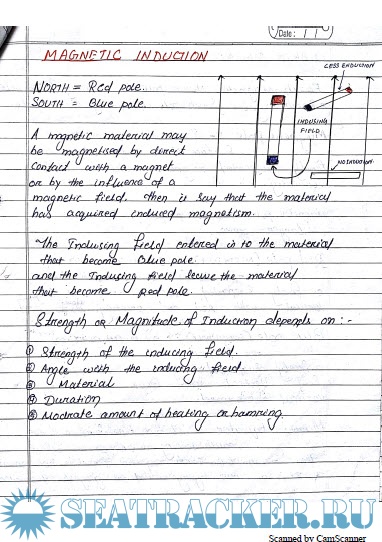 Date:
MAGNETIC INDUCTION
LESS ENDUCTION
NORTH = Red pole.
SOUTH = Blue pole.
INDUSING
FIELD
A magnetic material may
be magnetised by direct
Contact with a magnet
or by the influence of a
NO INDUCTION
magnetic field, then is say that the material
has acquired induced magnetism.
The Indusing field entered in to the material
that become Blue pole
and the Indusing field leave the material
that become Red pole.
Strength or Magnitude of Induction depends on :-
① Strength of the inducing field.
② Angle with the inducing field.
③ Material
④ Duration
⑤ Modrate amount of heating or hamring.
SEATRACKER.RU
Scanned by CamScanner